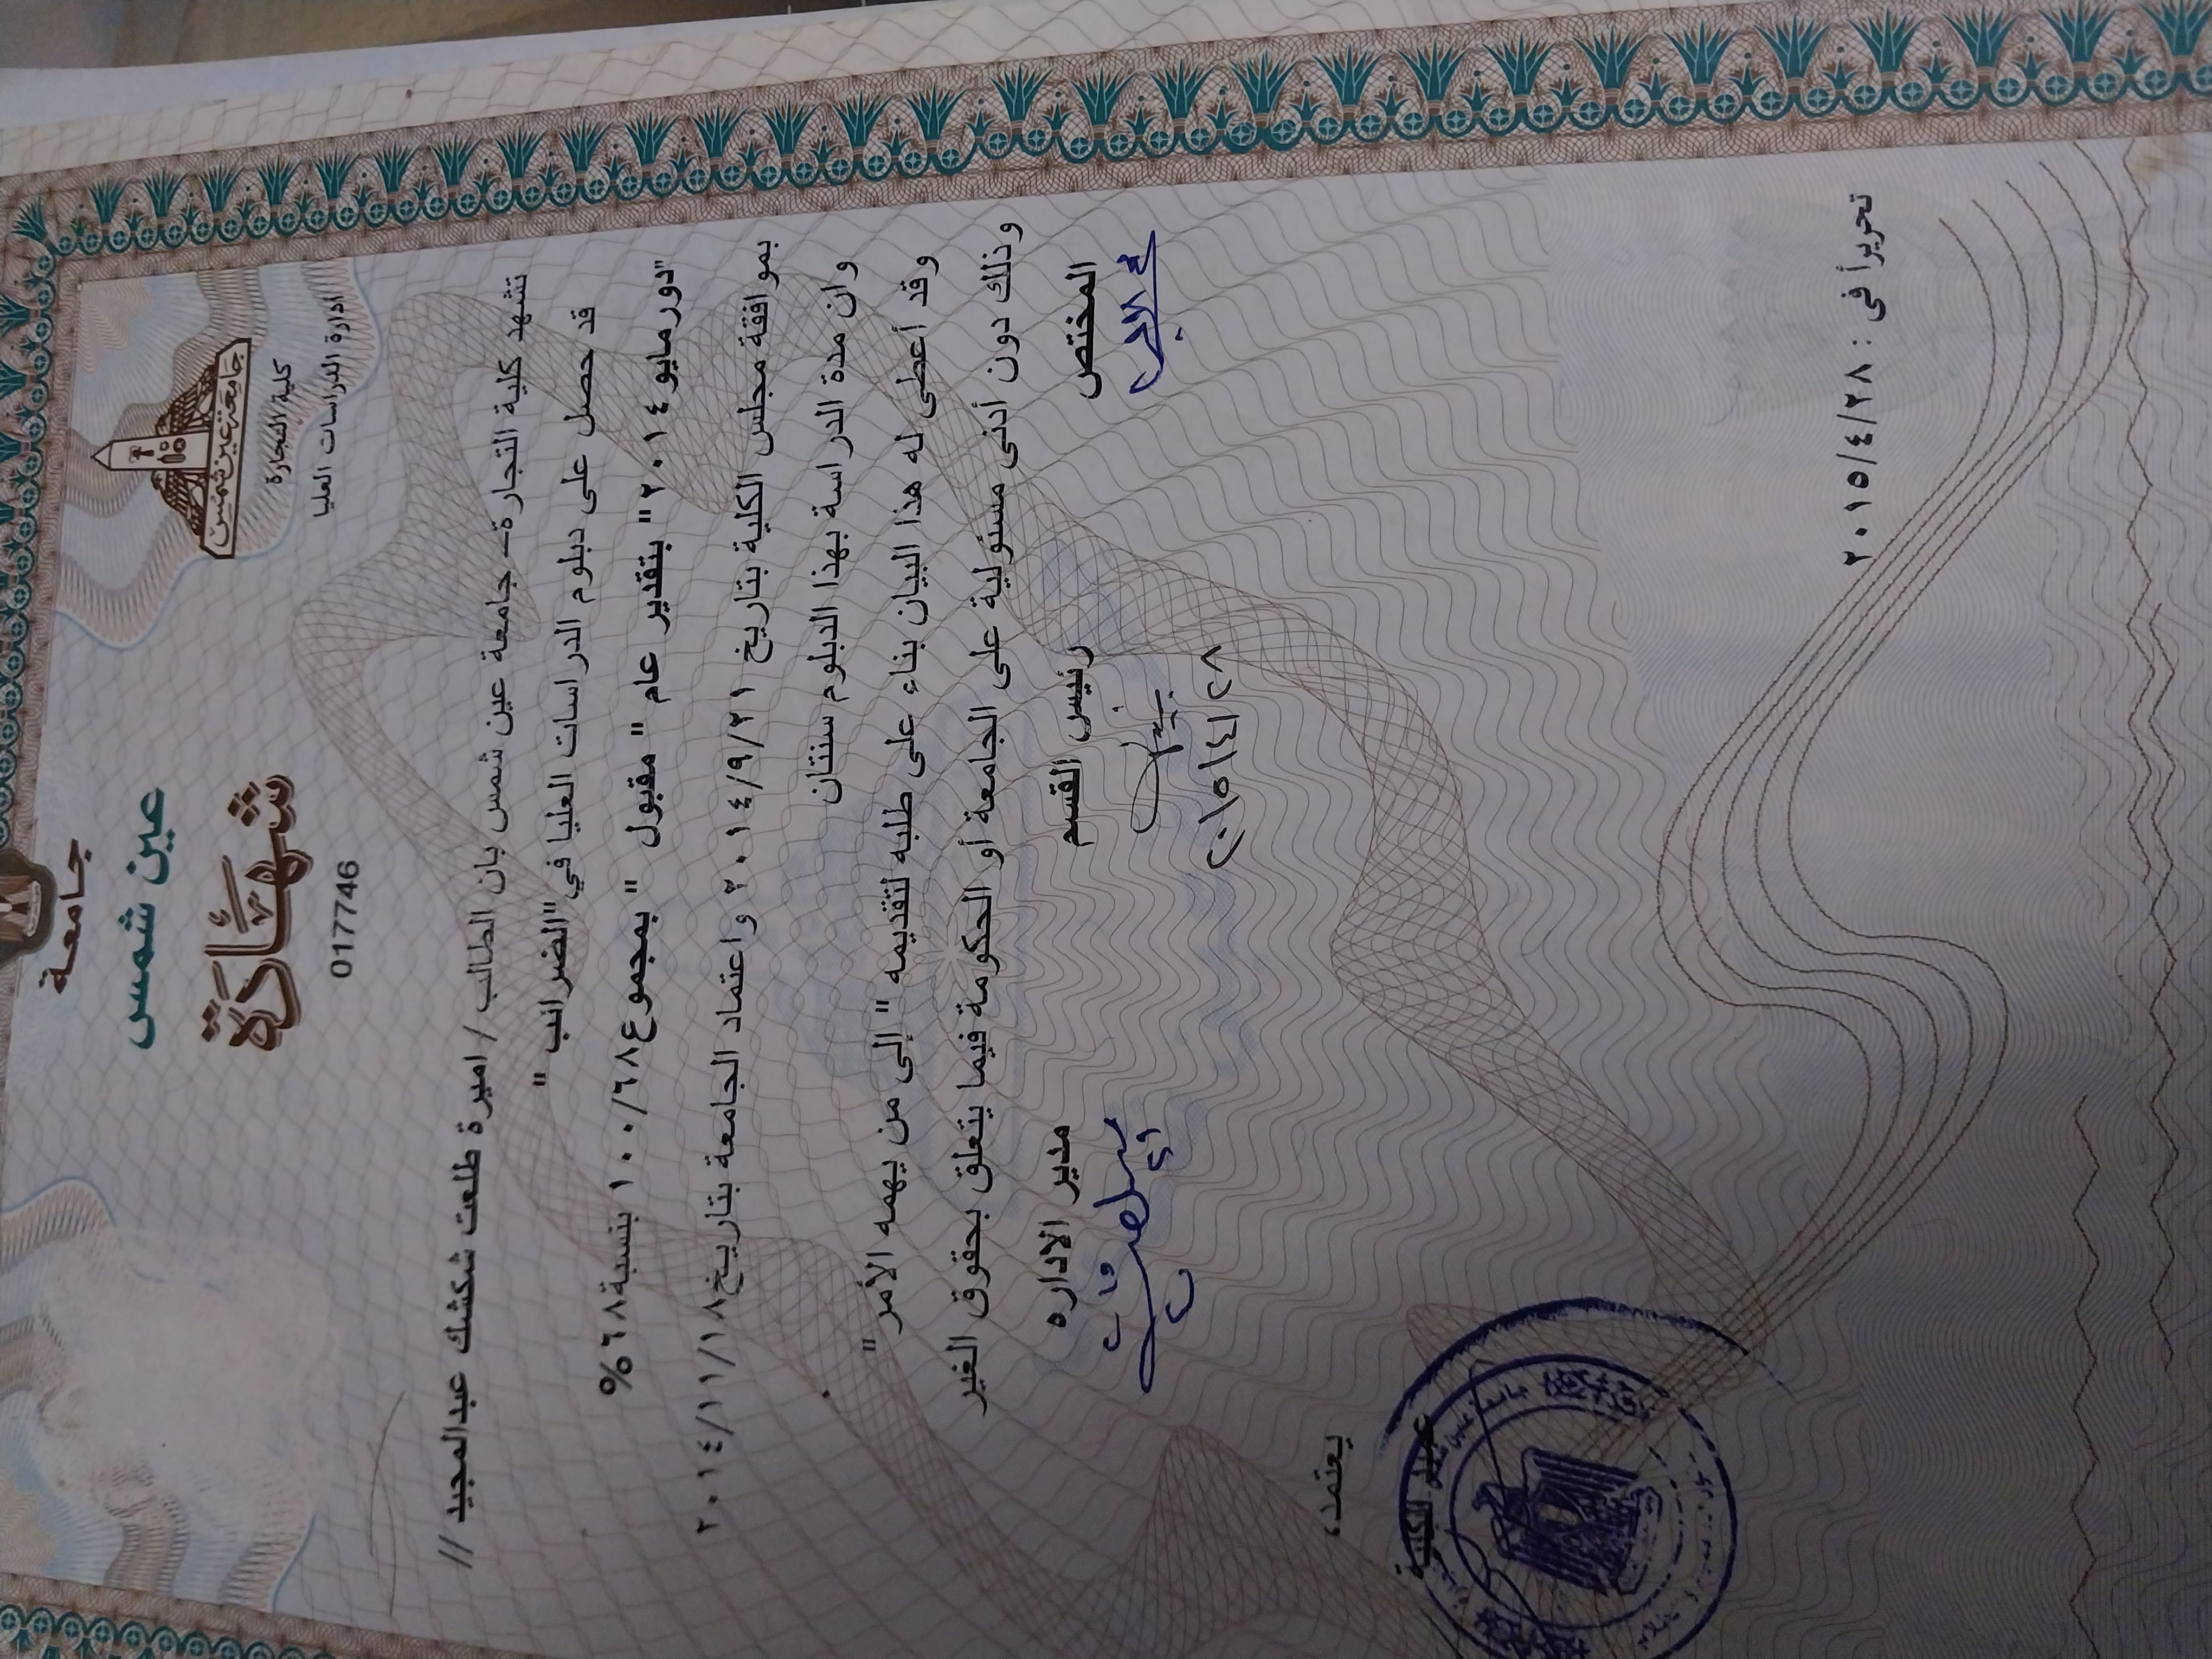 جامعة
عين شمس
شهادة
0177746
جامعة عين شمس
كلية التجارة
ادارة الدراسات العليا
تشهد كلية التجارة – جامعة عين شمس بان الطالب / اميرة طلعت شكشك عبدالمجيد //
قد حصل على دبلوم الدراسات العليا في "الضرائب "
"دور مايو ٢٠١٤ " بتقدير عام " مقبول " بمجموع ٦٨٨/١٠٠٠ بنسبة ٦٨٨%
بموافقة مجلس الكلية بتاريخ ٢٠١٤/٩/٢١ واعتماد الجامعة بتاريخ ٢٠١٤/١١/١٨
وان مدة الدراسة بهذا الدبلوم سنتان .
وقد أعطى له هذا البيان بناء على طلبه لتقديمه " إلى من يهمه الأمر "
وذلك دون أدنى مسئولية على الجامعة أو الحكومة فيما يتعلق بحقوق الغير
المختص رئيس القسم مدير الاداره
٢٠١٥/٤/٢٨
يعتمد،
عميد الكلية
تحريراً فى : ٢٠١٥/٤/٢٨